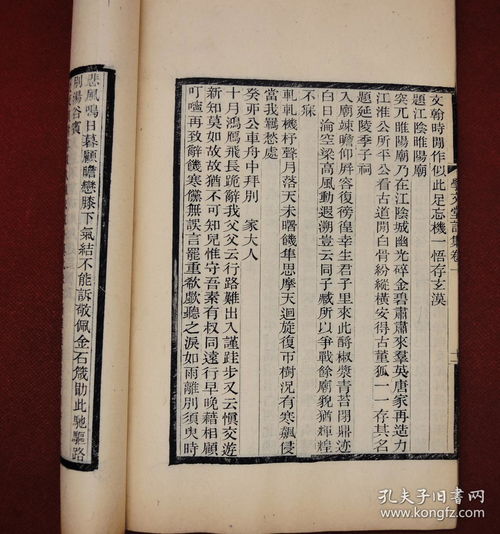 學文堂詩集卷一
文翰時閒作似此足忘機一悟存玄漠
題江陰睢陽廟
突兀睢陽廟乃在江陰城幽光碎金碧肅肅來羣英唐家再造力
江淮公所平公看古道開白骨紛縱橫安得古董狐一一存其名
題延陵季子祠
入廟竦瞻仰屏容復徬徨幸生君子里來此酹椒漿青苔閉鼎迹
白日淪空梁高風動遐溯豈云同子臧所以爭戰餘廟貌猶輝煌
不寐
軋軋機杼聲月落天未曙饑隼思摩天迴旋復帀樹況有寒飆侵
當我羈愁處
癸亥公車舟中拜別　家大人
十月鴻鴈飛長跪辭我父父云行路難出入謹跬步又云慎交遊
新知莫如故故猶不可知兒惟守吾素有叔同遠行早晚藉相顧
叮嚀再致辭饑寒儻無誤言罷重欷歔聽之淚如雨離別須臾時
悲風鳴日暮顧瞻戀膝下氣結不能訴敬佩金石箴勖此馳驅路
別湯谷賓
孔夫子旧书网
www.kongfz.com